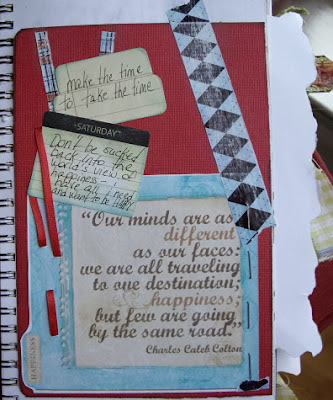 make the time
to take the time
"SATURDAY"
Don't be sucked
back into the
world's view of
happiness –
make all I need
and want to be
"Our minds are as
different
as our faces:
we are all traveling
to one destination;
happiness;
but few are going
by the same road."
Charles Caleb Colton
HAPPINESS